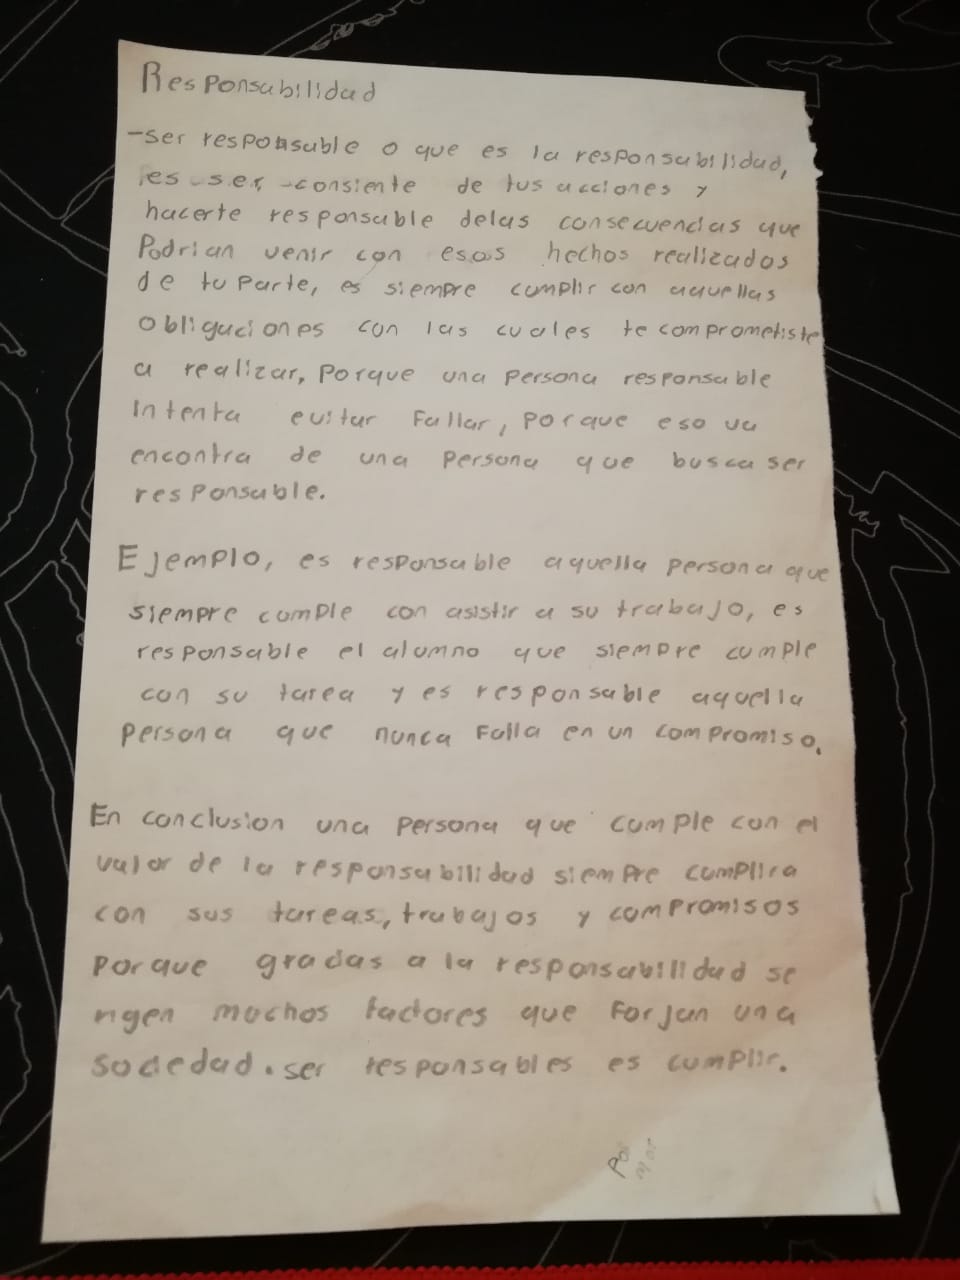 Responsabilidad
-ser responsable o que es la responsabilidad,
es ser consiente de tus acciones y
hacerte responsable delas consecuencias que
Podrian venir con esos hechos realizados
de tu parte, es siempre cumplir con aquellas
obligaciones con las cuales te comprometiste
a realizar, porque una persona responsable
intenta evitar fallar, porque eso va
encontra de una persona que busca ser
responsable.
Ejemplo, es responsable aquella persona que
siempre cumple con asistir a su trabajo, es
responsable el alumno que siempre cumple
con su tarea y es responsable aquella
persona que nunca falla en un compromiso.
En conclusion una persona que cumple con el
valor de la responsabilidad siempre cumplira
con sus tareas, trabajos y compromisos
porque gracias a la responsabilidad se
rigen muchos factores que forjan una
sociedad. ser responsables es cumplir.